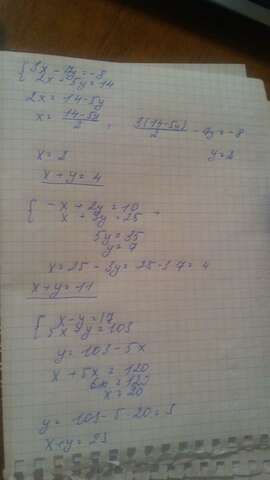 { 3x - 7y = -8
2x + 5y = 14
2x = 14-5y
x = (14-5y)/2 , 3(14-5y)/2 - 7y = -8
x = 2 y = 2
x + y = 4
{ -x + 2y = 10 +
x + 3y = 25
5y = 35
y = 7
x = 25 - 3y = 25 - 3·7 = 4
x + y = 11
{ x - y = 17
5x + y = 103
y = 103 - 5x
x + 5x = 120
6x = 120
x = 20
y = 103 - 5·20 = 3
x + y = 23